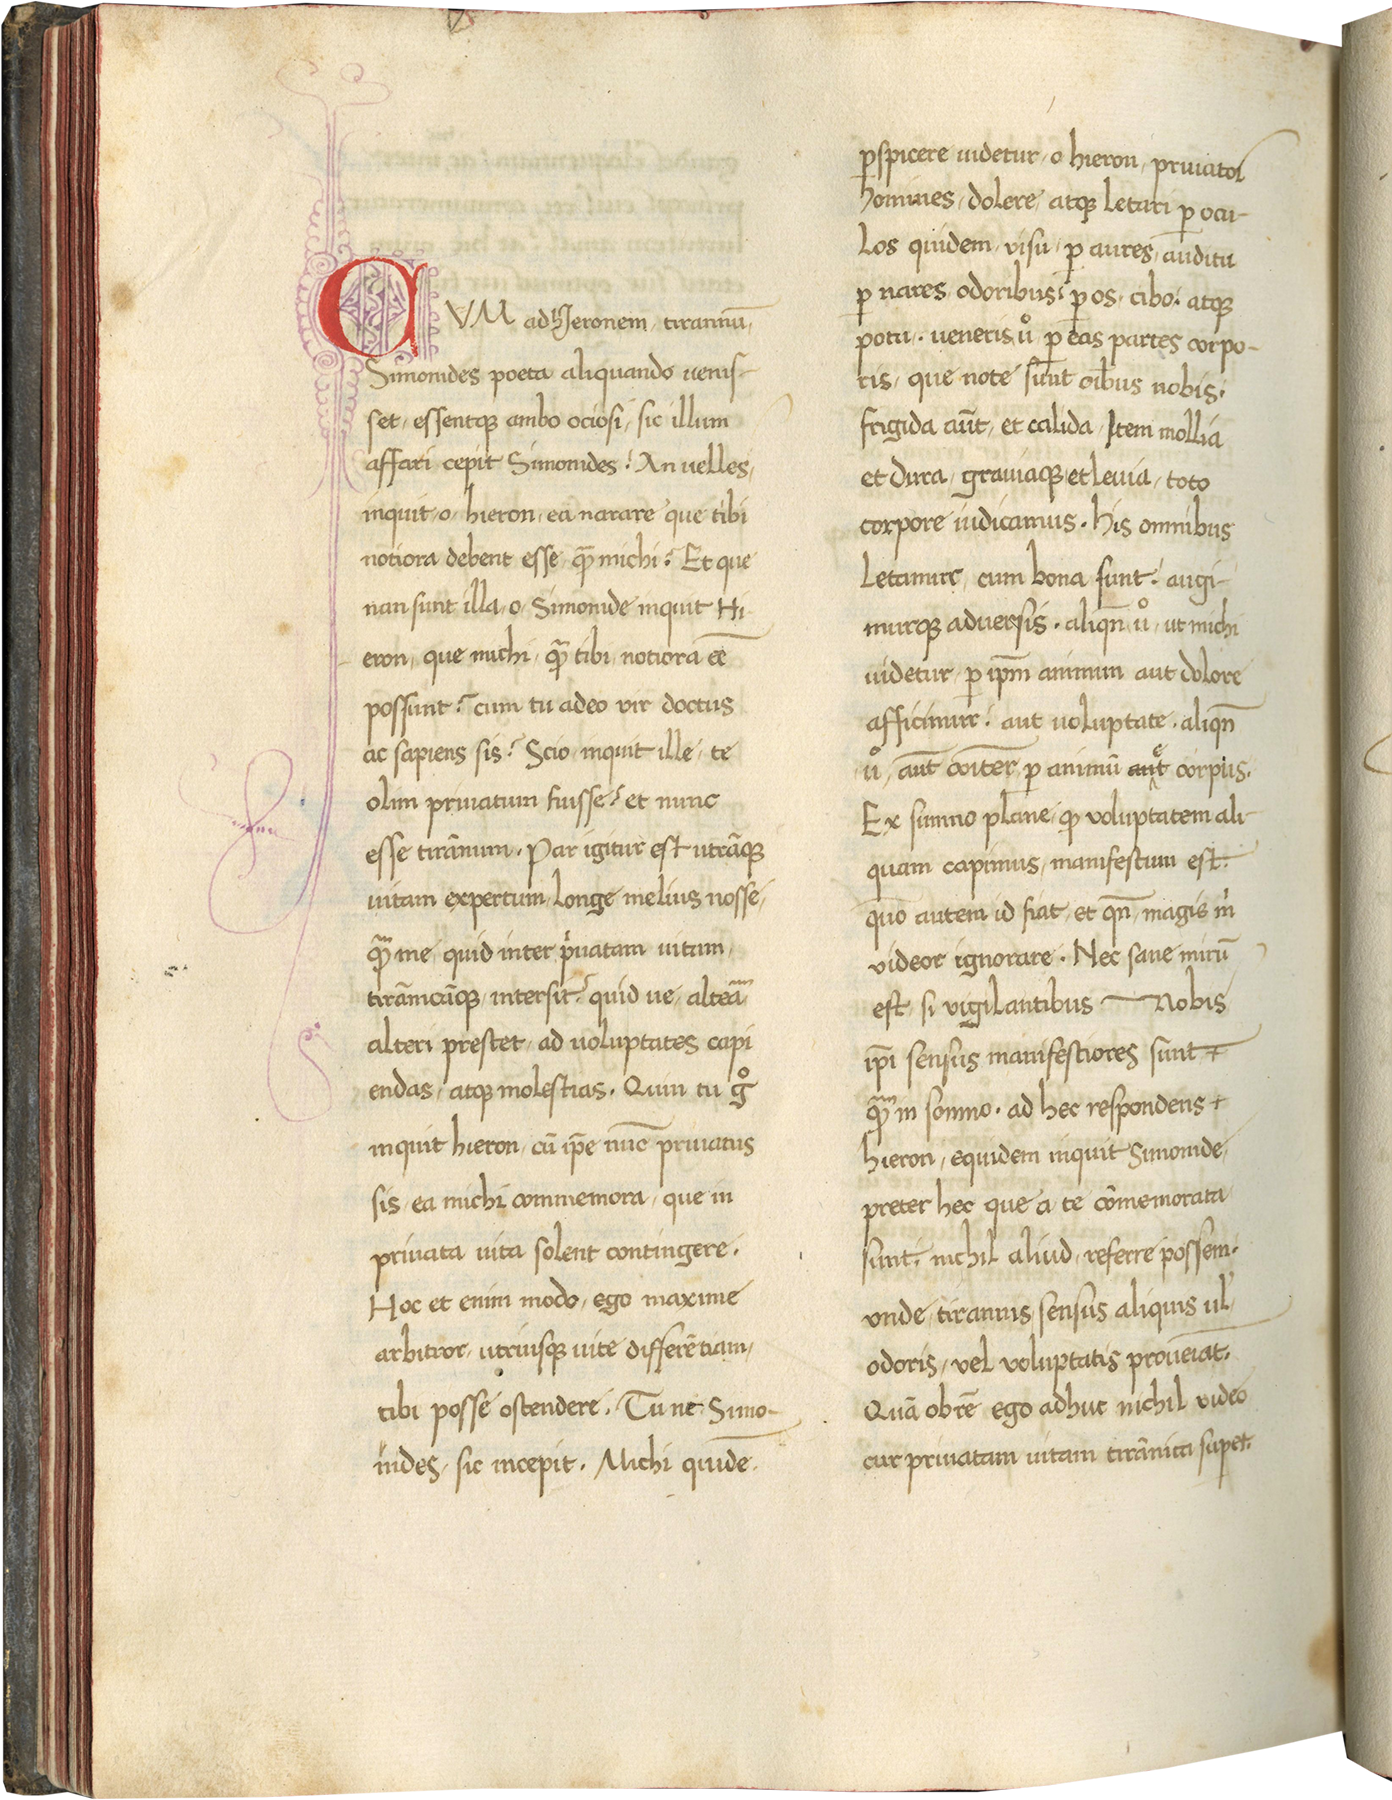 CVM ad hieronem, tirannū,
Simonides poeta aliquando venis-
set, essentqꝫ ambo ociosi, sic illum
affari cepit Simonides? An velles,
inquit, o, hieron, ea narare que tibi
notiora debent esse, qͣꝫ michi? Et que
nan sunt illa, o, Simonide inquit Hi
eron, que michi, qͣꝫ tibi, notiora eē
possunt? cum tu adeo vir doctus
ac sapiens sis? Scio, inquit ille, te
olim priuatum fuisse? et nunc
esse tirānnum. Par igitur est utrāqꝫ
uitam expertum, longe melius nosse,
qͣꝫ me, quid inter pͥuatam uitam,
tirānicāqꝫ, intersit? quid ue, alteᷓa
alteri prestet, ad uoluptates capi
endas, atqꝫ molestias. Quin tu gͦ
inquit hieron, cū ip̄e nūc priuatus
sis, ea michi commemora, que in
priuata uita solent contingere.
Hoc et enim modo, ego maxime
arbitror, utriusqꝫ uite differētiam,
tibi posse ostendere. Tu ne Simo-
nides, sic incepit. Michi quidē.
ꝑspicere uidetur, o hieron, priuatos
homines, dolere, atqꝫ letari ꝑ ocu-
los quidem, visu, ꝑ aures, auditu
ꝑ nares, odoribus? ꝑ os, cibo? atqꝫ
potu. ueneris uͦ, ꝑ eas partes corpo-
ris, que note sunt oībus nobis.
frigida aūt, et calida, Item mollia
et dura, grauiaqꝫ et leuia, toto
corpore iudicamus. His omnibus
letamur, cum bona sunt? augi-
murqꝫ aduersis. aliqn̄ uͦ, ut michi
uidetur, ꝑ ip̄m animum aut dolore
afficimur? aut uoluptate. aliqn̄
uͦ, aūt coīter, ꝑ animū et corpus.
Ex sumno plane, ꝙ voluptatem ali-
quam capimus, manifestum est?
quo autem id fiat, et qn̄, magis m̄
videor ignorare. Nec sane mirū
est, si vigilantibus Nobis
ip̄i sensus manifestiores sunt
qͣꝫ in somno. ad hec respondens
hieron, equidem inquit Simonide,
preter hec que a te cōmemorata
sunt? nichil aliud, referre possem.
vnde, tirannus, sensus aliquis ul'
odoris, vel voluptatis proueniat.
Quā obrē ego adhuc nichil video
cur priuatam uitam tirānica supet.